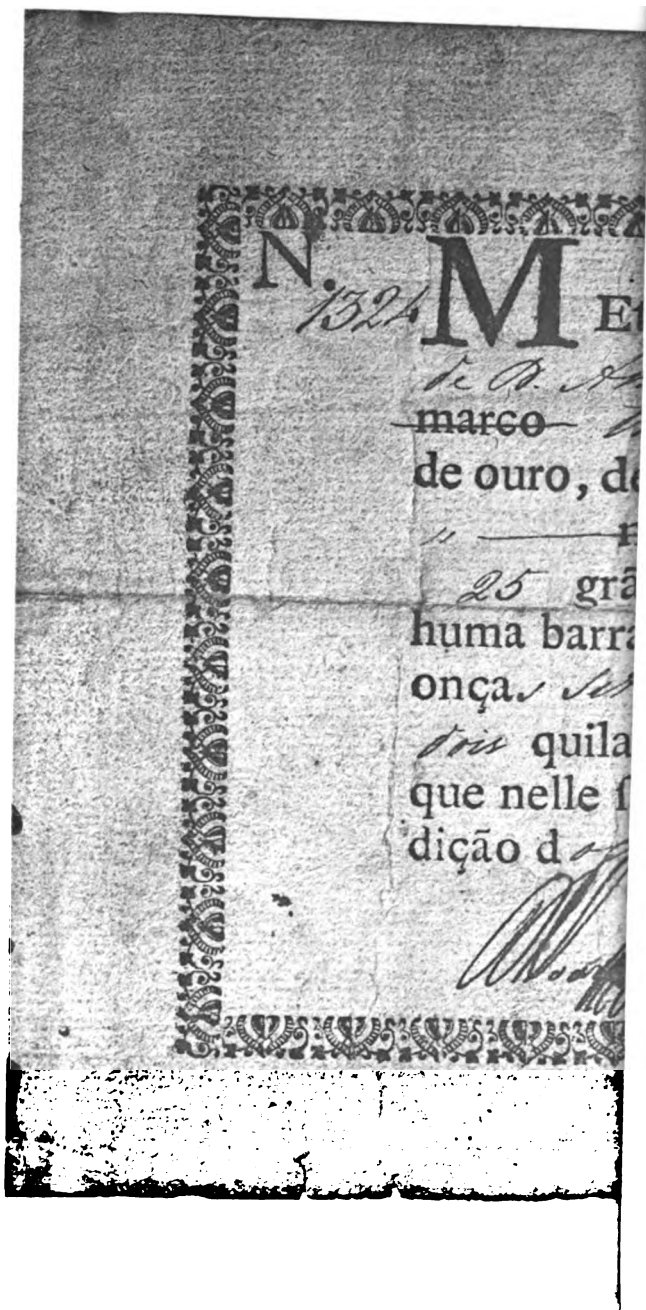 N.
1324 MEt
de D. An
marco
de ouro, de
"
25 grã
huma barra
onças
dois quila
que nelle ſ
dição d